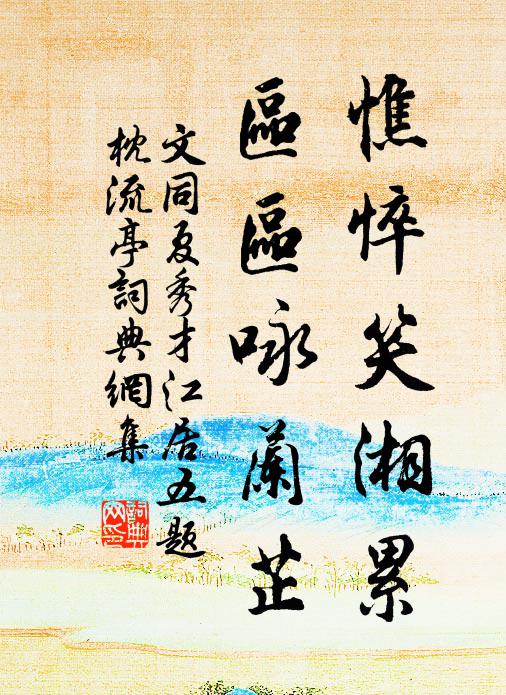 憔悴笑湘累
區區咏蘭芷
文同夏秀才江居五題
枕流亭詞典網集